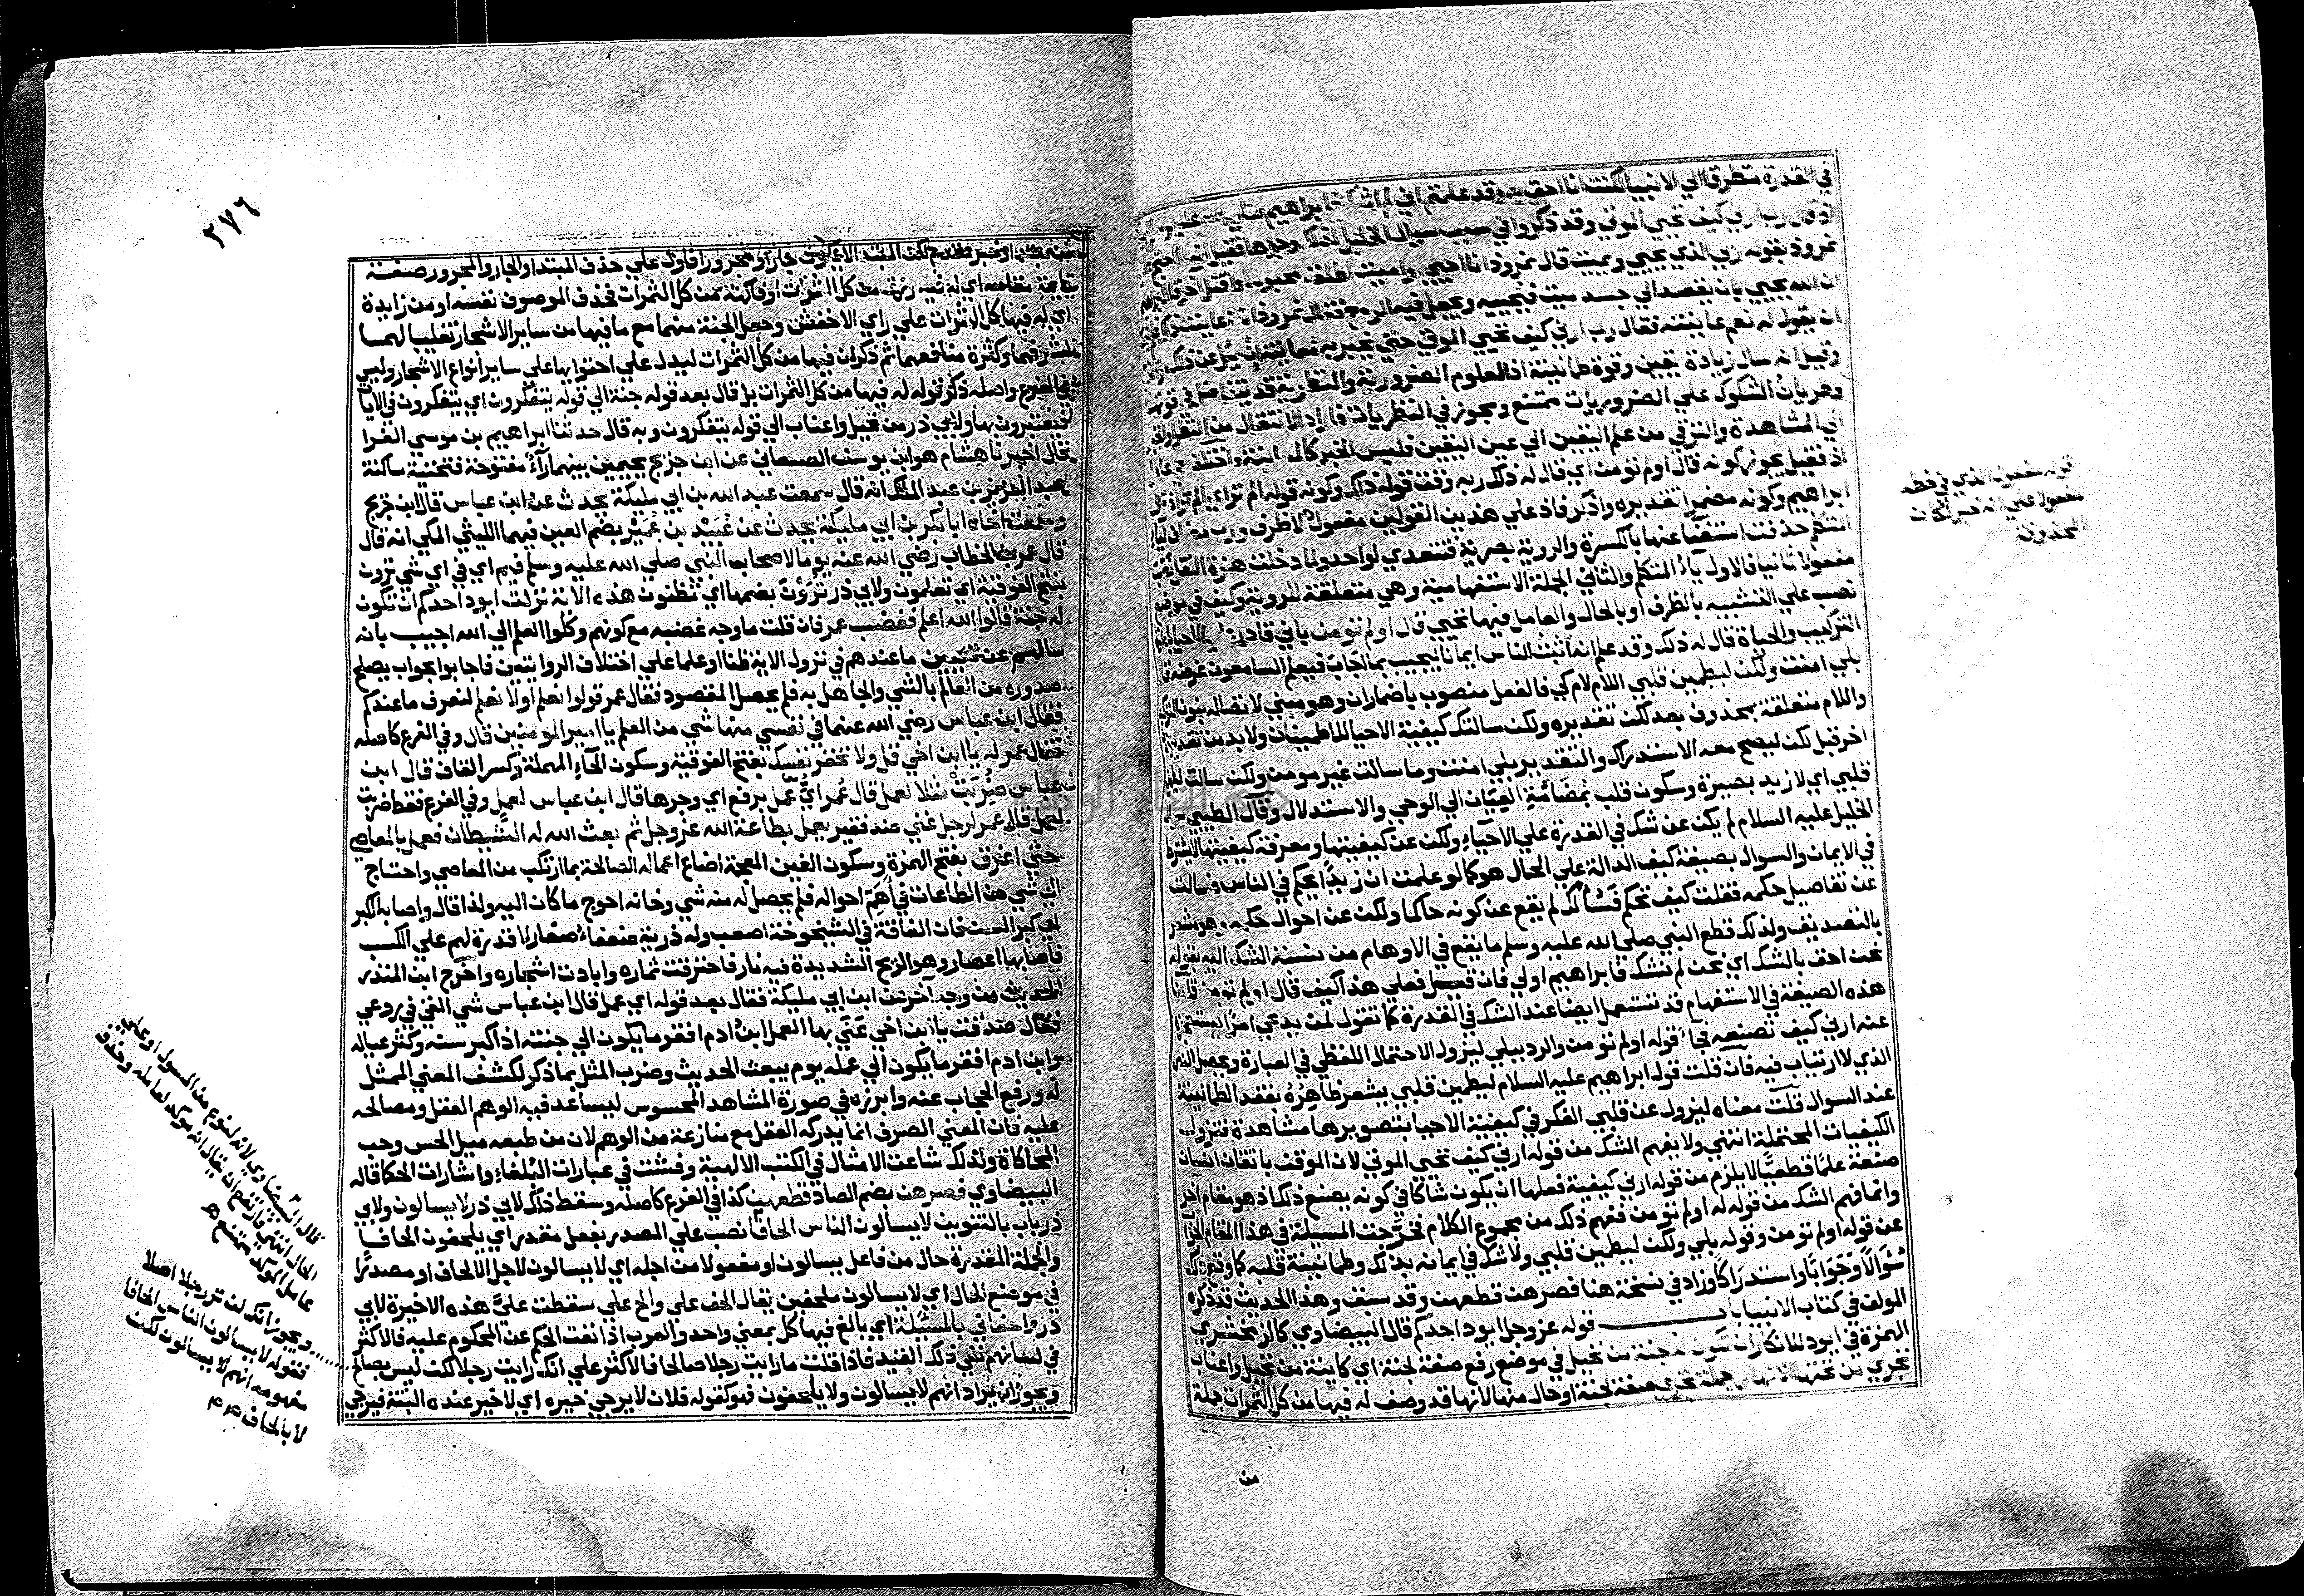 في القدرة متطرقا الي الانبيا لكنت انا احق به وقد علمتم اني لم اشك فابراهيم صلي الله عليه
اذ قال رب ارني كيف تحيي الموتي وقد ذكروا في سبب سوال الخليل لذلك وجوها فقيل انه احتج علي
نمرود بقوله ربي الذي يحيي ويميت قال نمرود انا احيي واميت اطلق محبوسا واقتل اخر قال
ان الله يحيي بان يقصد الي جسد ميت فيحييه ويجعل فيه الروح فقال نمرود انت عاينت ذلك فلم
ان يقول له نعم عاينته فقال رب ارني كيف تحيي الموتي حتي يخبر به معاينة ان سئل عن ذلك
وقيل انه سال زيادة يقين وقوة طمانينة اذ العلوم الضرورية والنظرية قد تتفاضل في قوتها
وجريان الشكوك علي الضروريات ممتنع ومجوز في النظريات فاراد الانتقال من النظر
الي المشاهدة والترقي من علم اليقين الي عين اليقين فليس الخبر كالمعاينة واختلف في عامل
اذ فقيل يجوز كونه قال اولم تومن اي قال له ذلك ربه وقت قوله ذلك وكونه قوله الم تر
ابراهيم وكونه مضمرا تقديره واذكر فاذ علي هذين القولين مفعول لا ظرف ورب
المتكلم حذفت استغناء عنها بالكسرة والروية بصرية فتتعدي لواحد ولما دخلت همزة النقل
مفعولا ثانيا فالاول ياء المتكلم والثاني الجملة الاستفهامية وهي متعلقة للروية وكيف في موضع
نصب علي التشبيه بالظرف او بالحال والعامل فيها تحيي قال اولم تومن باني قادر علي الاحيا
التركيب والحياة قال له ذلك وقد علم انه اثبت الناس ايمانا ليجيب بما اجاب فيعلم السامعون غرضه
بلي امنت ولكن ليطمين قلبي اللام لام كي فالفعل منصوب باضمار ان وهو مبني لاتصاله بنون
واللام متعلقة بمحذوف بعد لكن تقديره ولكن سالتك كيفية الاحيا للاطمينان ولا بد من تقدير
اخر قبل لكن ليصح معه الاستدراك والتقدير بلي امنت وما سالت غير مومن ولكن سالت ليطمين
قلبي اي لازيد بصيرة وسكون قلب بمضامة العيان الي الوحي والاستدلال وقال الطيبي
الخليل عليه السلام لم يكن عن شك في القدرة علي الاحياء ولكن عن كيفيتها ومعرفة كيفيتها لا تشترط
في الايمان والسوال بصيغة كيف الدالة علي الحال هو كما لو علمت ان زيدا يحكم في الناس فسالت
عن تفاصيل حكمه فقلت كيف تحكم فسؤالك لم يقع عن كونه حاكما ولكن عن احوال حكمه وهو مشعر
بالتصديق ولذلك قطع النبي صلي الله عليه وسلم ما يقع في الاوهام من نسبة الشك اليه بقوله
نحن احق بالشك اي نحن لم نشك فابراهيم اولي فان قيل فعلي هذا كيف قال اولم تومن قلنا
هذه الصيغة في الاستفهام قد تستعمل ايضا عند الشك في القدرة كما تقول لمن يدعي امرا يستعجز
عنه ارني كيف تصنعه فجاء قوله اولم تومن والرد ببلي ليزول الاحتمال اللفظي في العبارة ويحصل النص
الذي لا ارتياب فيه فان قلت قول ابراهيم عليه السلام ليطمين قلبي يشعر ظاهره بفقد الطمانينة
عند السوال قلت معناه ليزول عن قلبي الفكر في كيفية الاحيا بتصويرها مشاهدة فتزول
الكيفيات المحتملة انتهي ولا يفهم الشك من قوله ارني كيف تحيي الموتي لان الموقن باتقان انسان
صنعة علما قطعيا لا يلزم من قوله ارني كيفية فعلها ان يكون شاكا في كونه يصنع ذلك اذ هو مقام اخر
وانما فهم الشك من قوله له اولم تومن ففهم ذلك من مجموع الكلام فخرجت المسيلة في هذا المقام
عن قوله اولم تومن وقوله بلي ولكن ليطمين قلبي ولا شك في ايمانه بذلك وطمانينة قلبه كما وقع
سؤالا وجوابا واستدراكا وزاد في نسخة هنا فصرهن قطعهن وقد سبق وهذا الحديث قد ذكره
المولف في كتاب الانبيا باب قوله عز وجل ايود احدكم قال البيضاوي كالزمخشري
الهمزة في ايود للانكار ان تكون له جنة من نخيل في موضع رفع صفة لجنة اي كاينة من نخيل واعناب
تجري من تحتها الانهار جملة تجري صفة لجنة او حال منها لانها قد وصفت له فيها من كل الثمرات جملة
من
قوله مفعولا الذي في خطه
مفعولا علي انه خبر لكان
المحذوفة
٢٧٦
من مبتدا وخبر مقدم لكن المبتدا لا يكون جارا ومجرورا فاول علي حذف المبتدا والجار والمجرور صفة
قايمة مقامه اي له فيه رزق من كل الثمرات او فاكهة من كل الثمرات فحذف الموصوف نفسه او من زايدة
اي له فيها كل الثمرات علي راي الاخفش وجعل الجنة منهما مع ما فيها من ساير الاشجار تغليبا لهما
لشرفهما وكثرة منافعهما ثم ذكر ان فيها من كل الثمرات ليدل علي احتوايها علي ساير انواع الاشجار وليس
في الفرع واصله ذكر قوله له فيها من كل الثمرات بل قال بعد قوله جنة الي قوله يتفكرون اي يتفكرون في الايات
فيعتبرون بها ولابي ذر من نخيل واعناب الي قوله يتفكرون وبه قال حدثنا ابراهيم بن موسي الفرا
قال اخبرنا هشام هو ابن يوسف الصنعاني عن ابن جريج بجيمين بينهما راء مفتوحة فتحتية ساكنة
عبد العزيز بن عبد الملك انه قال سمعت عبد الله بن ابي مليكة يحدث عن ابن عباس قال ابن جريج
وسمعت اخاه ابا بكر بن ابي مليكة يحدث عن عبيد بن عمير بضم العين فيهما الليثي المكي انه قال
قال عمر بن الخطاب رضي الله عنه يوما لاصحاب النبي صلي الله عليه وسلم فيم اي في اي شي ترون
بفتح الفوقية اي تعلمون ولابي ذر ترون بضمها اي تظنون هذه الاية نزلت ايود احدكم ان تكون
له جنة قالوا الله اعلم فغضب عمر فان قلت ما وجه غضبه مع كونهم وكلوا العلم الي الله اجيب بانه
سالهم عن تعيين ما عندهم في نزول الاية ظنا او علما علي اختلاف الروايتين فاجابوا بجواب يصلح
صدوره من العالم بالشي والجاهل به فلم يحصل المقصود فقال عمر قولوا نعلم اولا نعلم لنعرف ما عندكم
فقال ابن عباس رضي الله عنهما في نفسي منها شي من العلم يا امير المومنين قال وفي الفرع كاصله
فقال عمر له يا ابن اخي قل ولا تحقر نفسك بفتح الفوقية وسكون الحاء المهملة وكسر القاف قال ابن
عباس ضربت مثلا لعمل قال عمر اي عمل برفع اي وجرها قال ابن عباس لعمل وفي الفرع فقط ضربت
لعمل قال عمر لرجل غني ضد فقير يعمل بطاعة الله عز وجل ثم بعث الله له الشيطان فعمل بالمعاصي
حتي اغرق بفتح الهمزة وسكون الغين المعجمة اضاع اعماله الصالحة بما ارتكب من المعاصي واحتاج
الي شي من الطاعات في اهم احواله فلم يحصل له منه شي وخانه احوج ما كان اليه ولذا قال واصابه الكبر
اي كبر السن فان الفاقة في الشيخوخة اصعب وله ذرية ضعفاء صغار لا قدرة لهم علي الكسب
فاصابها اعصار وهو الريح الشديدة فيه نار فاحترقت ثماره وابادت اشجاره واخرج ابن المنذر
الحديث من وجه آخر عن ابن ابي مليكة فقال بعد قوله اي عمل قال ابن عباس شي القي في روعي
فقال صدقت يا ابن اخي عني بها العمل ابن ادم افقر ما يكون الي جنته اذا كبر سنه وكثر عياله
وابن ادم افقر ما يكون الي عمله يوم يبعث الحديث وضرب المثل بما ذكر لكشف المعني الممثل
له ورفع الحجاب عنه وابرزه في صورة المشاهد المحسوس ليساعد فيه الوهم العقل ومصالحه
عليه فان المعني الصرف انما يدركه العقل مع منازعة من الوهم لان من طبعه ميل الحس وحب
المحاكاة ولذلك شاعت الامثال في الكتب الالهية وفشت في عبارات البلغاء واشارات الحكما قاله
البيضاوي فصرهن بضم الصاد قطعهن كذا في الفرع كاصله وسقط ذلك لابي ذر لا يسالون ولابي
ذر باب بالتنوين لا يسالون الناس الحافا نصب علي المصدر بفعل مقدر اي يلحفون الحافا
والجملة المقدرة حال من فاعل يسالون او مفعولا من اجله اي لا يسالون لاجل الالحاف او مصدرا
في موضع الحال اي لا يسالون ملحفين يقال الحف علي والح علي سقطت علي هذه الاخيرة لابي
ذر واحفاني بالمسئلة اي بالغ فيها كل بمعني واحد والعرب اذا نفت الحكم عن المحكوم عليه فالاكثر
في لسانهم نفي ذلك القيد فاذا قلت ما رايت رجلا صالحا فالاكثر علي انك رايت رجلا لكن ليس بصالح
ويجوز ان يراد انهم لا يسالون ولا يلحفون فهو كقوله فلان لا يرجي خيره اي لا خير عنده البتة فيرجي
قال البيضاوي لانه لنوع من السول او علي
الحال انتهي فارتفع ان يقال انه موكد لعامله وحذف
عامل الموكد ممتنع
ويجوز انك لن تر رجلا اصلا
فقوله لا يسالون الناس الحافا
مفهومه انهم لا يسالون لكن
لا بالحاف